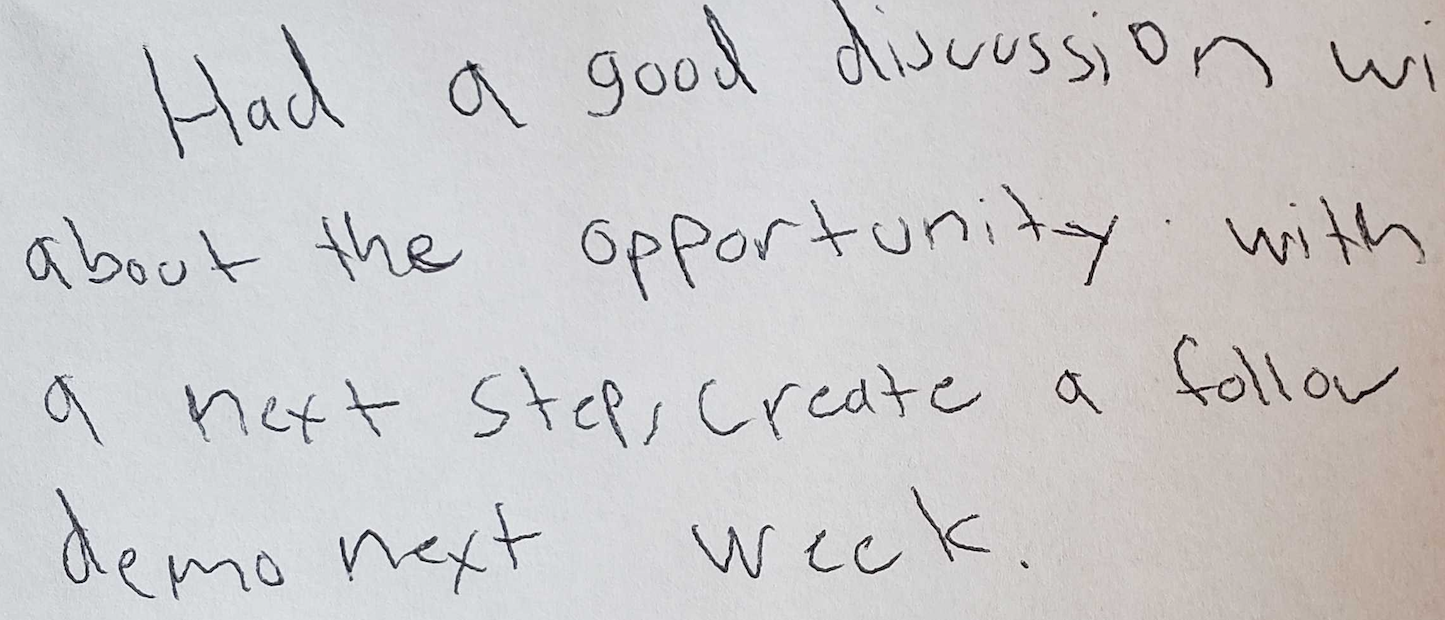 Had a good discussion wi
about the opportunity with
a next step, create a follow
demo next week.